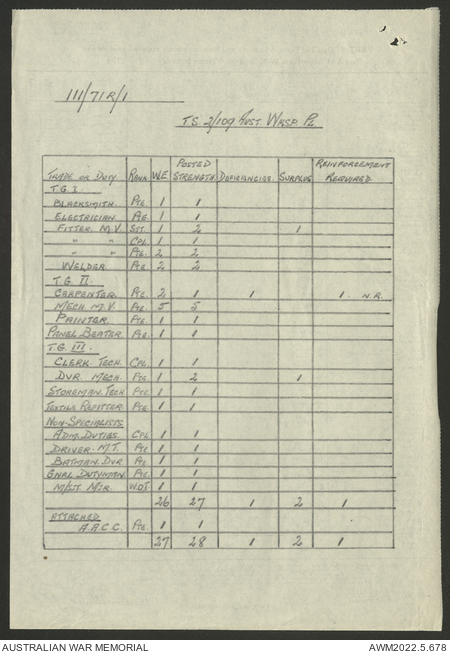 111/71R/1
T.S. 2/109 Aust. Wksp. Pl.
Trade or Duty Rank W.E. Posted Strength Deficiencies Surplus Reinforcement Required
T.G. I.
Blacksmith Pte 1 1
Electrician Pte 1 1
Fitter M.V. Sgt. 1 2 1
" " Cpl. 1 1
" " Pte. 2 2
Welder Pte 2 2
T.G. II
Carpenter Pte. 2 1 1 1 N.R.
Mech. M.V. Pte. 5 5
Painter Pte. 1 1
Panel Beater Pte. 1 1
T.G. III.
Clerk Tech. Cpl. 1 1
Dvr Mech. Pte 1 2 1
Storeman Tech Pte 1 1
Textile Refitter Pte. 1 1
Non-Specialists
Adm. Duties. Cpl 1 1
Driver M.T. Pte 1 1
Batman Dvr Pte 1 1
Gnrl Dutyman Pte. 1 1
W.O.I. 1 1
26 27 1 2 1
Attached
A.A.C.C. Pte 1 1
27 28 1 2 1
AUSTRALIAN WAR MEMORIAL AWM2022.5.678